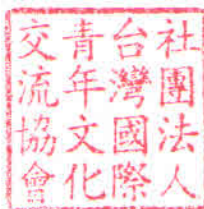 社團法人
台灣國際
青年文化
交流協會